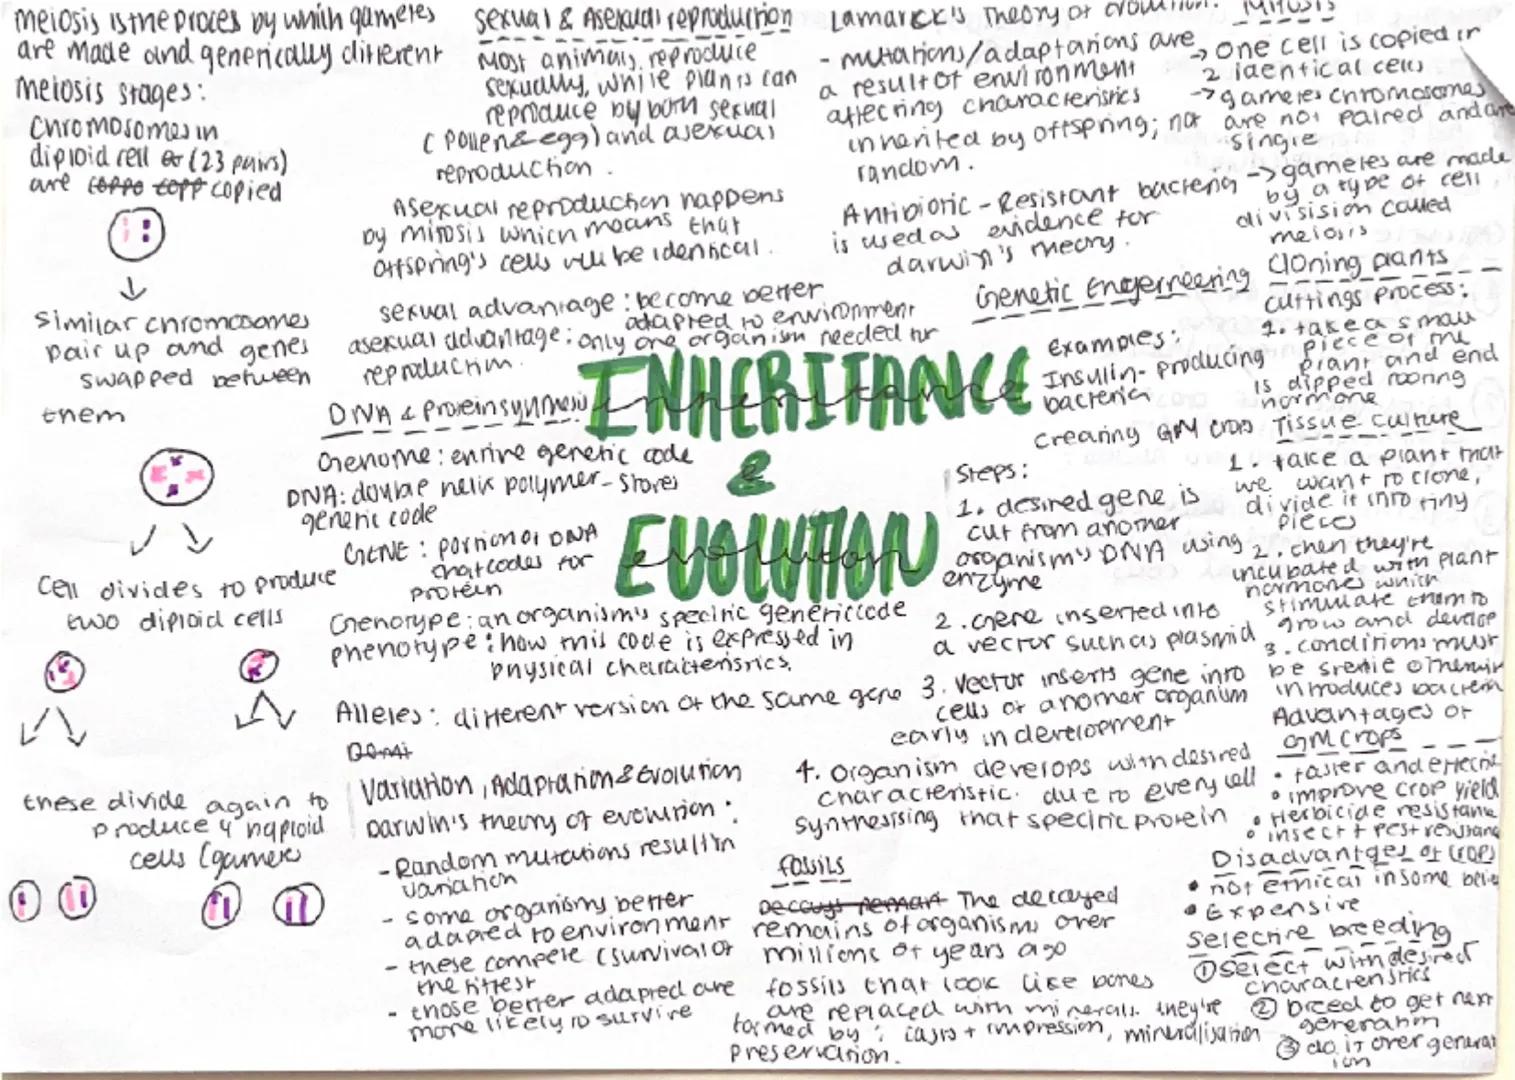 meiosis is the process by which gametes
are made and generically different
meiosis stages:
Chromosomes in
diploid cell (23 pairs)
are copied
Similar chromosomes
pair up and genes
swapped between
them
Cell divides to produce
two diploid cells
these divide again to
produce 4 haploid
cells (gametes
Sexual & Asexual reproduction
Most animals reproduce
sexually, while plants can
reproduce by both sexual
(pollen & egg) and asexual
reproduction.
Asexual reproduction happens
by mitosis which means that
offspring's cells will be identical.
sexual advantage: become better
adapted to environment
asexual advantage: only one organism needed for
reproduction.
DNA & Protein synthesis
Genome: entire genetic code
DNA: double helix polymer - stores
genetic code
GENE: portion of DNA
that codes for
protein
Genotype: an organism's specific genetic code
phenotype: how this code is expressed in
physical characteristics.
Alleles: different version of the same gene
Domi
INHERITANCE
inheritance
&
EVOLUTION
evolution
Variation, Adaptation & Evolution
Darwin's theory of evolution:
- Random mutations result in
variation
- some organisms better
adapted to environment
- these compete (survival of
the fittest
- those better adapted are
more likely to survive
Lamarck's Theory of evolution:
- mutations/adaptations are
a result of environment
affecting characteristics
inherited by offspring; not
random.
Antibiotic-Resistant bacteria
is used as evidence for
darwin's theory.
Genetic Engerneering
Examples:
Insulin-producing
bacteria
creating GM crops
Steps:
1. desired gene is
cut from another
organism's DNA using
enzyme
2. Gene inserted into
a vector such as plasmid
3. Vector inserts gene into
cells of another organism
early in development
4. Organism develops with desired
characteristic. due to every cell
synthesising that specific protein
fossils
The decayed
remains of organisms over
millions of years ago
fossils that look like bones
are replaced with minerals. they're
formed by: casts + impression, mineralisation
preservation.
Mitosis
→ one cell is copied in
2 identical cells
→ gametes chromosomes
are not paired and are
single
→ gametes are made
by a type of cell
divisision called
meiosis
Cloning plants
cuttings process:
1. take a small
piece of the
plant and end
is dipped rooting
hormone
Tissue culture
1. take a plant that
we want to clone,
divide it into tiny
pieces
2. then they're
incubated with plant
hormones which
stimulate them to
grow and develop
3. conditions must
be sterile otherwise
introduces bacteria
Advantages of
GM crops
• faster and efficient
• improve crop yield
• Herbicide resistance
• insect + pest resistance
Disadvantges of crops
• not ethical in some
• Expensive
Selective breeding
① select with desired
characteristics
② breed to get next
generation
③ do it over generat
ion